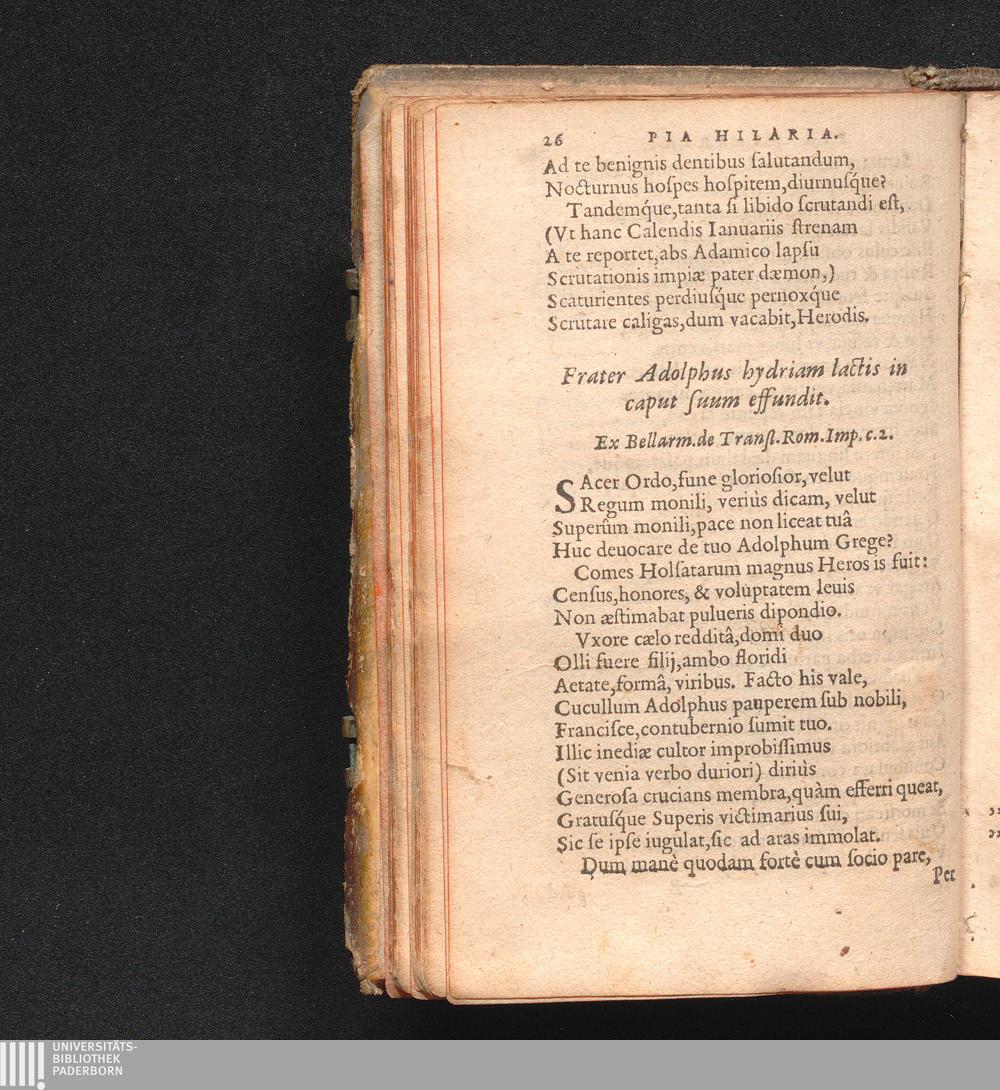 26 PIA HILARIA.
Ad te benignis dentibus ſalutandum,
Nocturnus hoſpes hoſpitem,diurnuſq́ue?
Tandemq́ue,tanta ſi libido ſcrutandi eſt,
(Vt hanc Calendis Ianuariis ſtrenam
A te reportet,abs Adamico lapſu
Scrutationis impiæ pater dæmon,)
Scaturientes perdiuſq́ue pernoxq́ue
Scrutare caligas,dum vacabit,Herodis.
Frater Adolphus hydriam lactis in
caput ſuum effundit.
Ex Bellarm.de Tranſl.Rom.Imp.c.2.
SAcer Ordo,fune glorioſior,velut
Regum monili, veriùs dicam, velut
Superûm monili,pace non liceat tuâ
Huc deuocare de tuo Adolphum Grege?
Comes Holſatarum magnus Heros is fuit:
Cenſus,honores, & voluptatem leuis
Non æſtimabat pulueris dipondio.
Vxore cælo redditâ,domi duo
Olli fuere filij,ambo floridi
Aetate,formâ, viribus. Facto his vale,
Cucullum Adolphus pauperem ſub nobili,
Franciſce,contubernio ſumit tuo.
Illic inediæ cultor improbiſſimus
(Sit venia verbo duriori) diriùs
Generoſa crucians membra,quàm efferri queat,
Gratuſq́ue Superis victimarius ſui,
Sic ſe ipſe iugulat,ſic ad aras immolat.
Dum manè quodam fortè cum ſocio pare,
Per
UNIVERSITÄTS-
BIBLIOTHEK
PADERBORN